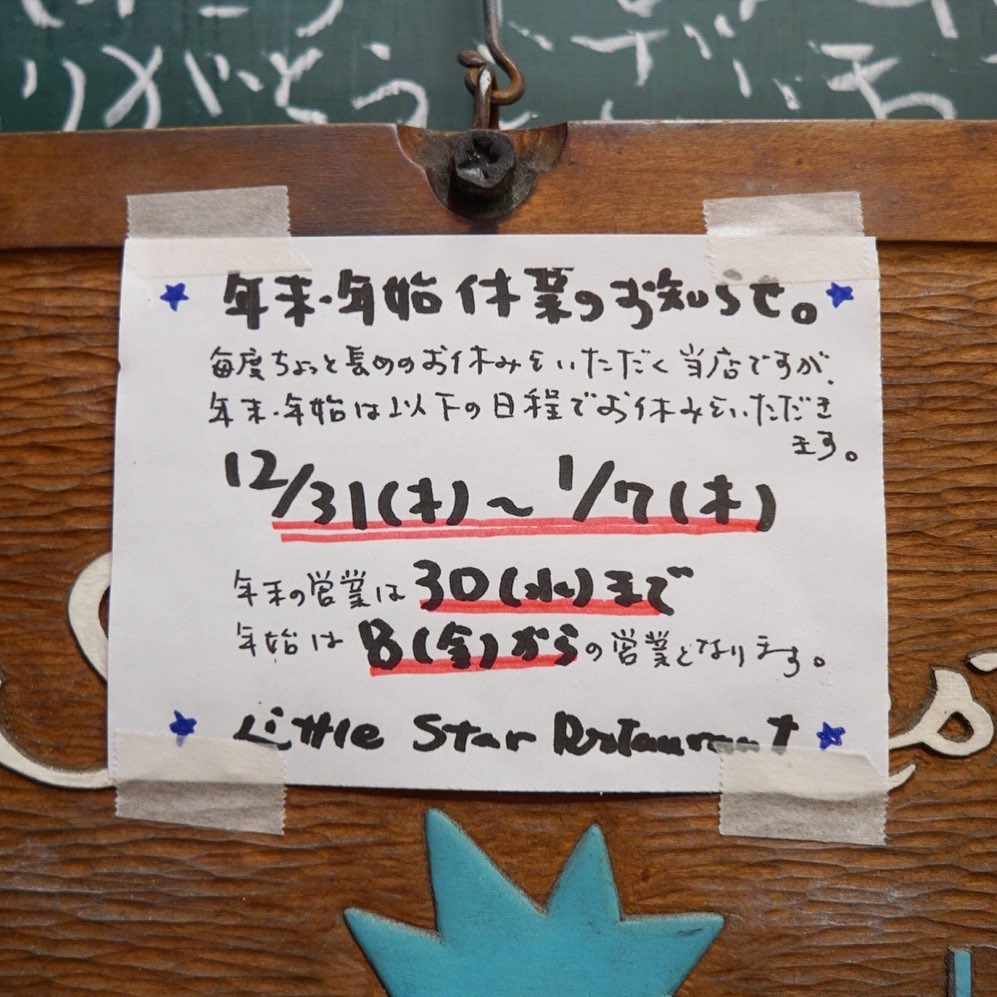 りがとう
年末・年始休業のお知らせ。
毎度ちょっと長めのお休みをいただく当店ですが、
年末・年始は以下の日程でお休みをいただき
ます。
12/31(木)～1/7(木)
年末の営業は30(水)まで
年始は8(金)からの営業となります。
Little Star Restaurant